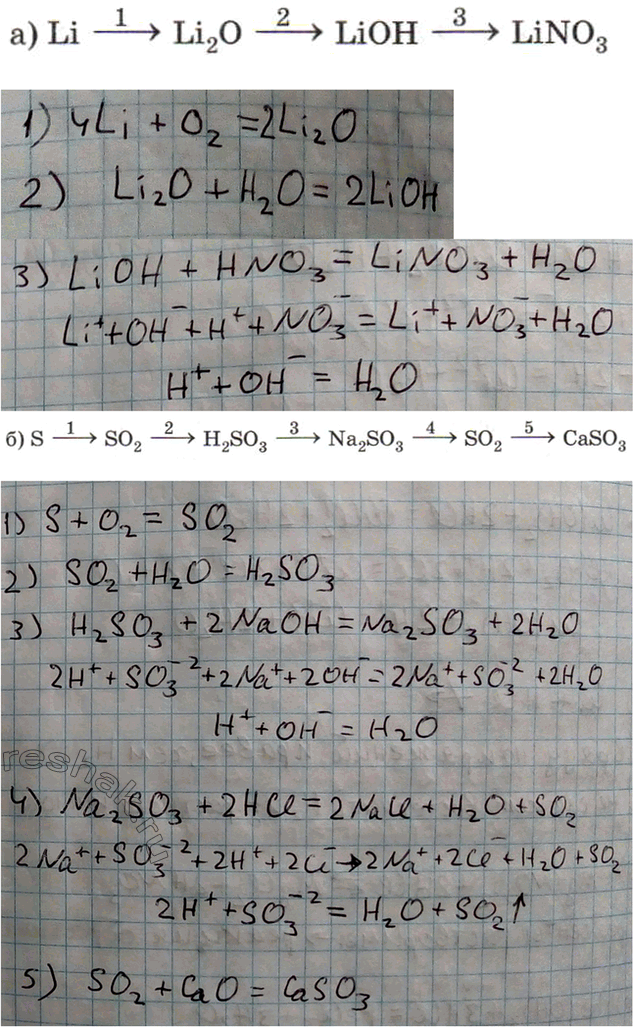 а) Li —1→ Li₂O —2→ LiOH —3→ LiNO₃
1) 4Li + O₂ = 2Li₂O
2) Li₂O + H₂O = 2LiOH
3) LiOH + HNO₃ = LiNO₃ + H₂O
Li⁺ + OH⁻ + H⁺ + NO₃⁻ = Li⁺ + NO₃⁻ + H₂O
H⁺ + OH⁻ = H₂O
б) S —1→ SO₂ —2→ H₂SO₃ —3→ Na₂SO₃ —4→ SO₂ —5→ CaSO₃
1) S + O₂ = SO₂
2) SO₂ + H₂O = H₂SO₃
3) H₂SO₃ + 2NaOH = Na₂SO₃ + 2H₂O
2H⁺ + SO₃⁻² + 2Na⁺ + 2OH⁻ = 2Na⁺ + SO₃⁻² + 2H₂O
H⁺ + OH⁻ = H₂O
reshak.ru
4) Na₂SO₃ + 2HCl = 2NaCl + H₂O + SO₂
2Na⁺ + SO₃⁻² + 2H⁺ + 2Cl⁻ → 2Na⁺ + 2Cl⁻ + H₂O + SO₂
2H⁺ + SO₃⁻² = H₂O + SO₂↑
5) SO₂ + CaO = CaSO₃